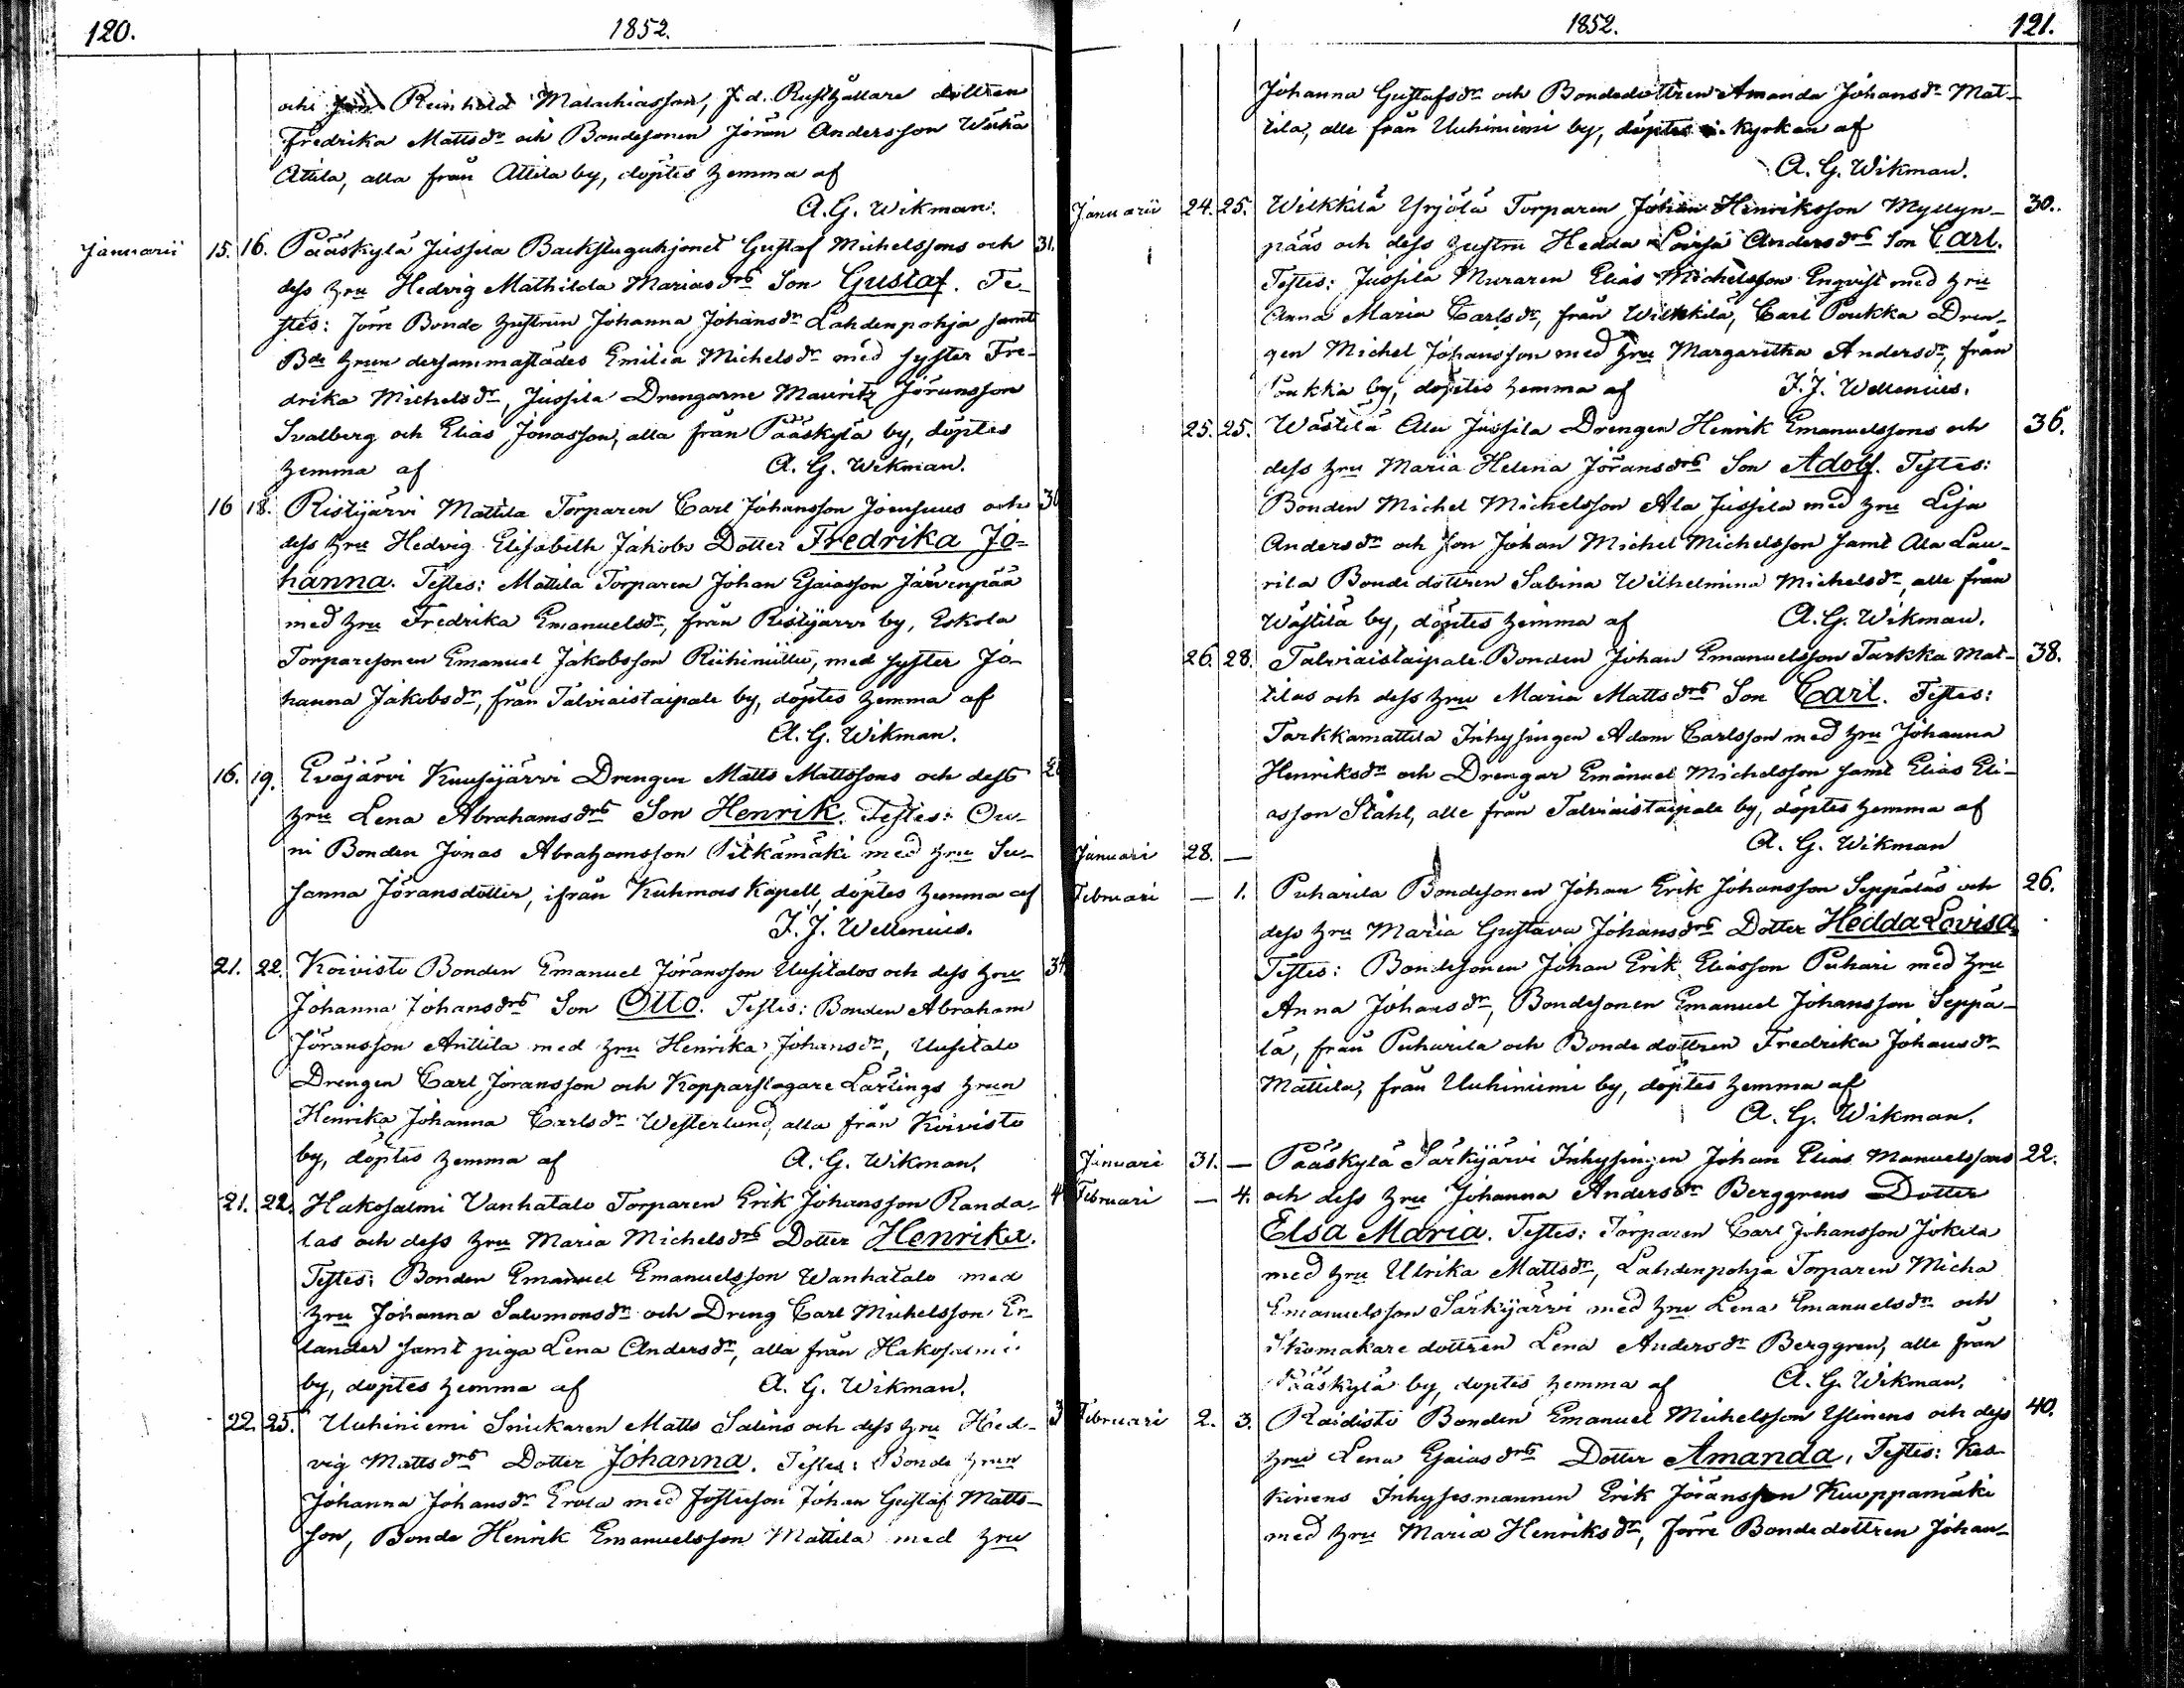 120. 1852.
och Reinhold Malachiasson, f. d. Rusthållare dottren
Fredrika Mattsdr och Bondesonen Jöran Andersson
Attila, alla från Attila by, döptes hemma af
A. G. Wikman.
Januarii 15. 16. Pääskylä Jussila Backstuguhjonet Gustaf Michelssons och 31.
dess hru Hedvig Mathilda Mariasdrs Son Gustaf. Te-
stes: Jörre Bonde hustrun Johanna Johansdr Lahdenpohja samt
Bde hrun dersammastädes Emilia Michelsdr med syster Fre-
drika Michelsdr, Jussila Drengarne Mauritz Jöransson
Svalberg och Elias Jonasson, alla från Pääskylä by, döptes
hemma af A. G. Wikman.
16 18. Ristijärvi Mattila Torparen Carl Johansson Joensuus och
dess hru Hedvig Elisabeth Jakobs Dotter Fredrika Jo-
hanna. Testes: Mattila Torparen Johan Esaiasson Järvenpää
med hru Fredrika Emanuelsdr, från Ristijärvi by, Eskola
Torparesonen Emanuel Jakobsson Riihiniittu, med syster Jo-
hanna Jakobsdr, från Talviaistaipale by, döptes hemma af
A. G. Wikman.
16. 19. Eväjärvi Kuusijärvi Drengen Matts Mattssons och dess
hru Lena Abrahamsdrs Son Henrik. Testes: Ou-
ni Bonden Jonas Abrahamsson Pitkämäki med hru Su-
sanna Jöransdotter, ifrån Kuhmois Kapell, döptes hemma af
F. J. Wellenius.
21. 22. Koivisto Bonden Emanuel Jöransson Uusitalos och dess hru
Johanna Johansdrs Son Otto. Testes: Bonden Abraham
Jöransson Anttila med hru Henrika Johansdr, Uusitalo
Drengen Carl Jöransson och Kopparslagare Lärlings hrun
Henrika Johanna Carlsdr Westerlund, alla från Koivisto
by, döptes hemma af A. G. Wikman.
21. 22. Hakosalmi Vanhatalo Torparen Erik Johansson Randa-
las och dess hru Maria Michelsdrs Dotter Henrika.
Testes: Bonden Emanuel Emanuelsson Wanhatalo med
hru Johanna Salomonsdr och Dreng Carl Michelsson Er-
lander samt piga Lena Andersdr, alla från Hakosalmi
by, döptes hemma af A. G. Wikman.
22. 25. Uuhiniemi Snickaren Matts Salins och dess hru Hed-
vig Mattsdrs Dotter Johanna. Testes: Bonde hrun
Johanna Johansdr Erola med Fosterson Johan Gustaf Matts-
son, Bonde Henrik Emanuelsson Mattila med hru
1852. 121.
Johanna Gustafsdr och Bondedottren Amanda Johansdr Mat-
tila, alle från Uuhiniemi by, döptes i kyrkan af
A. G. Wikman.
Januarii 24. 25. Wilkkilä Yrjölä Torparen Johan Henriksson Myllyn- 30.
pääs och dess hustru Hedda Lovisa Andersdrs Son Carl.
Testes: Jussila Muraren Elias Michelsson Enqvist med hru
Anna Maria Carlsdr, från Wilkkilä, Carl Poukka Dren-
gen Michel Johansson med hru Margaretha Andersdr, från
Poukka by, döptes hemma af F. J. Wellenius.
25. 25. Wästilä Ala Jussila Drengen Henrik Emanuelssons och 36.
dess hru Maria Helena Jöransdrs Son Adolf. Testes:
Bonden Michel Michelsson Ala Jussila med hru Lisa
Andersdr och son Johan Michel Michelsson samt Ala Lau-
rila Bondedottren Sabina Wilhelmina Michelsdr, alle från
Wästilä by, döptes hemma af A. G. Wikman.
26. 28. Talviaistaipale Bonden Johan Emanuelsson Tarkka Mat- 38.
tilas och dess hru Maria Mattsdrs Son Carl. Testes:
Tarkkamattila Inhysingen Adam Carlsson med hru Johanna
Henriksdr och Drengar Emanuel Michelsson samt Elias Eli-
asson Ståhl, alle från Talviaistaipale by, döptes hemma af
A. G. Wikman
Januari 28. —
Februari — 1. Puharila Bondesonen Johan Erik Johansson Seppäläs och 26.
dess hru Maria Gustava Johansdrs Dotter Hedda Lovisa.
Testes: Bondesonen Johan Erik Eliasson Puhari med hru
Anna Johansdr, Bondesonen Emanuel Johansson Seppä-
lä, från Puharila och Bondedottren Fredrika Johansdr
Mattila, från Uuhiniemi by, döptes hemma af
A. G. Wikman.
Januari 31. — Pääskylä Särkijärvi Inhysingen Johan Elias Manuelssons 22.
Februari — 4. och dess hru Johanna Andersdr Berggrens Dotter
Elsa Maria. Testes: Torparen Carl Johansson Jokela
med hru Ulrika Mattsdr, Lahdenpohja Torparen Micha
Emanuelsson Särkijärvi med hru Lena Emanuelsdr och
Skomakare dottren Lena Andersdr Berggren, alle från
Pääskylä by, döptes hemma af A. G. Wikman.
Februari 2. 3. Raidisto Bonden Emanuel Michelsson Ylinens och dess 40.
hru Lena Esaiasdrs Dotter Amanda. Testes: Kes-
kinens Inhysesmannen Erik Jöransson Kuoppamäki
med hru Maria Henriksdr, Jörre Bondedottren Johan-